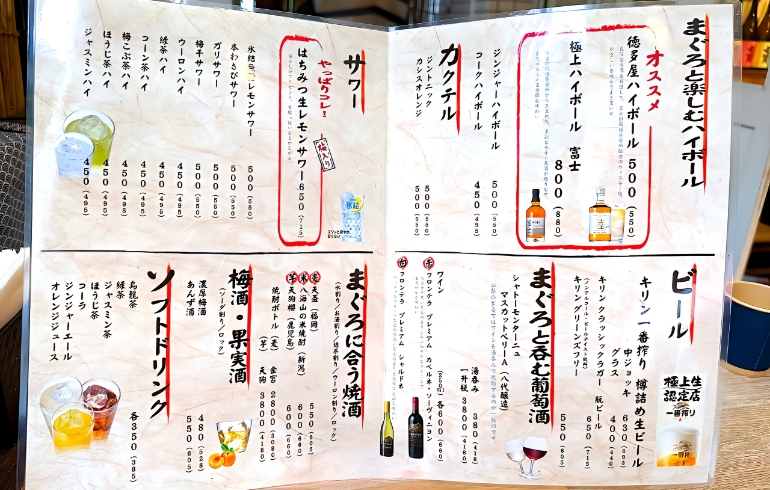 まぐろと楽しむハイボール
オススメ
徳多屋ハイボール 500（550）
極上ハイボール 富士 800（880）
ジンジャーハイボール 500（550）
コークハイボール 450（495）
カクテル
ジントニック 500（550）
カシスオレンジ 500（550）
サワー
やっぱりコレ！
はちみつ生レモンサワー 650（715）
氷結レモンサワー 500（550）
本わさびサワー 500（550）
ガリサワー 500（550）
梅干サワー 500（550）
ウーロンハイ 450（495）
緑茶ハイ 450（495）
コーン茶ハイ 450（495）
梅こぶ茶ハイ 450（495）
ほうじ茶ハイ 450（495）
ジャスミンハイ 450（495）
ビール
キリン一番搾り 樽詰め生ビール
中ジョッキ 630（693）
グラス 400（440）
キリン クラシックラガー 瓶ビール 650（715）
キリン グリーンズフリー 550（605）
極上生
認定店
一番搾り
まぐろと呑む葡萄酒
シャトーモンターニュ
マスカットベリーA（八代醸造）
湯呑み 380（418）
一升瓶 3800（4180）
ワイン
辛 フロンテラ プレミアム カベルネ・ソーヴィニヨン
甘 フロンテラ プレミアム シャルドネ
各600（660）
まぐろに合う焼酒
（水割り／お湯割り／緑茶割り／ウーロン割り／ロック）
麦 天盃（福岡） 550（605）
米 八海山の米焼酎（新潟） 600（660）
芋 天狗櫻（鹿児島） 600（660）
焼酎ボトル（麦） 金宮 2800（3080）
（芋） 天狗 3800（4180）
梅酒・果実酒
（ソーダ割り／ロック）
濃厚梅酒 480（528）
あんず酒 550（605）
ソフトドリンク
烏龍茶
緑茶
ジャスミン茶
ほうじ茶
コーラ
ジンジャーエール
オレンジジュース
各350（385）